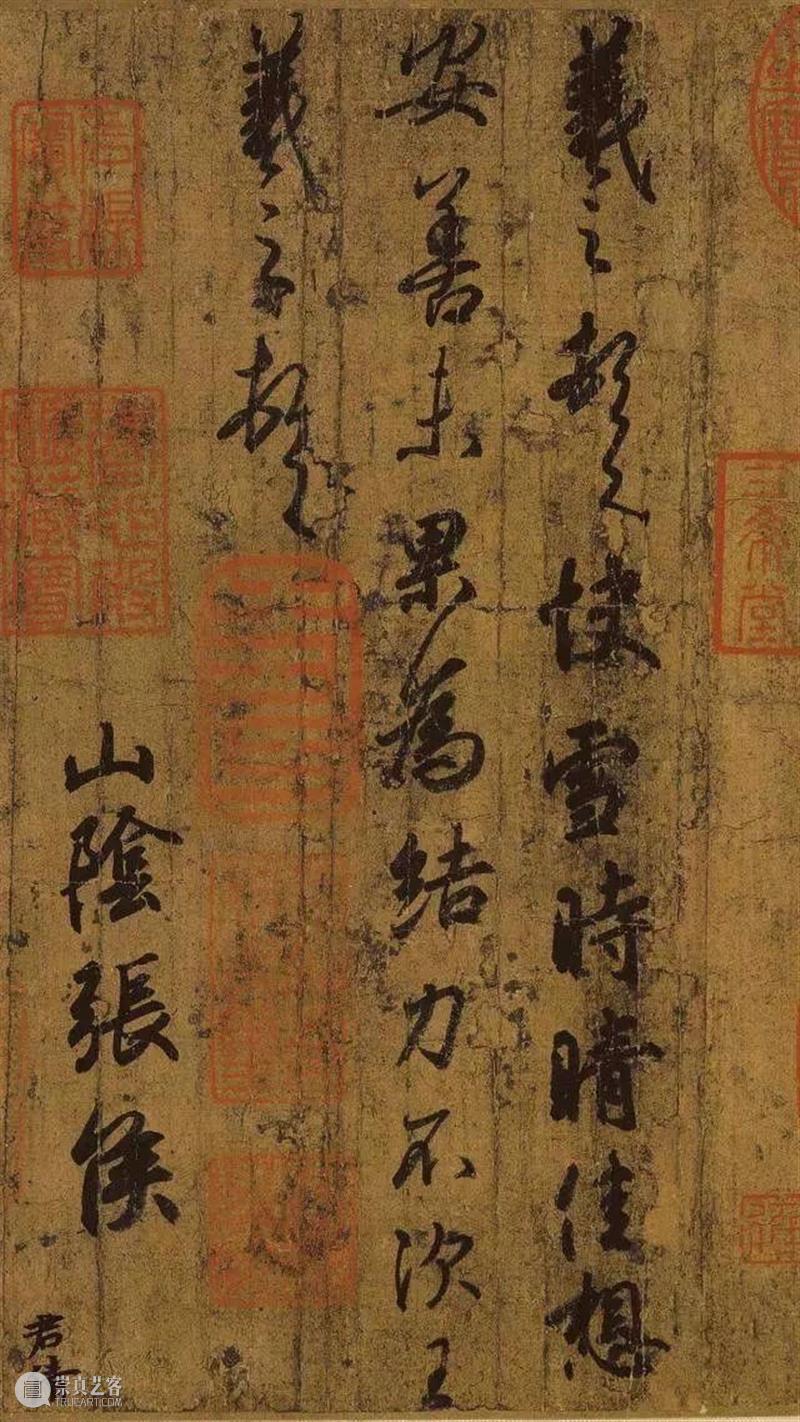 羲之頓首快雪時晴佳想
安善未果為結力不次王
羲之頓首
山陰張侯
君
三希堂
崇真艺客
TRUEART.COM